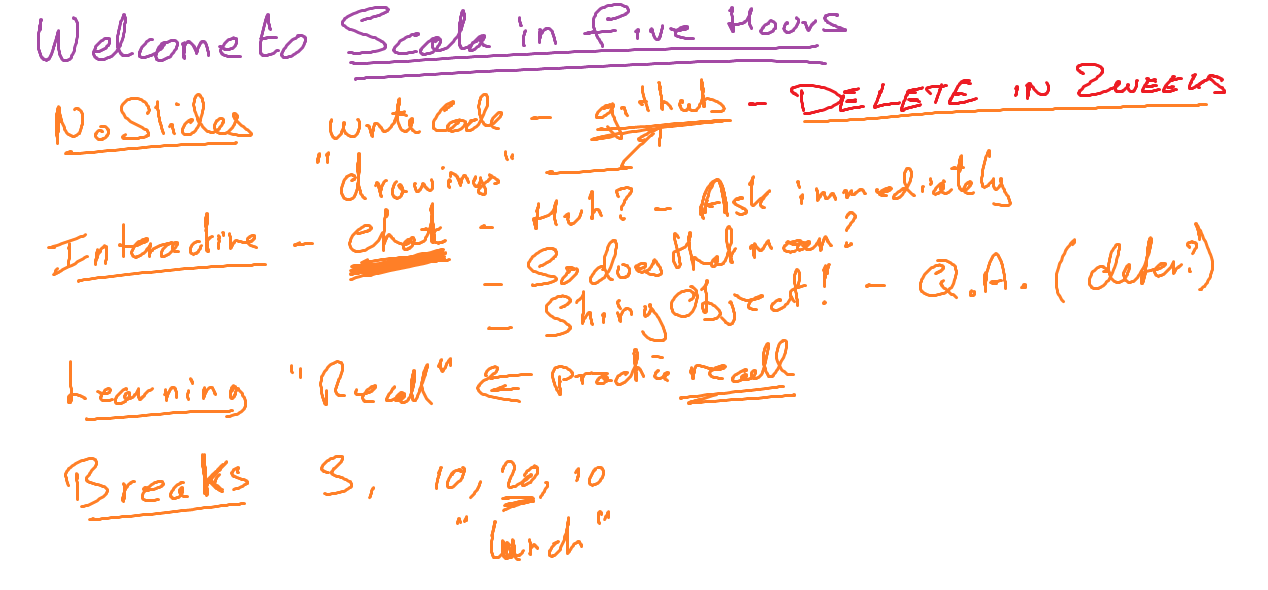 Welcome to Scala in Five Hours
No Slides write Code - github - DELETE IN 2 WEEKS
"drawings"
Interactive - chat - Huh? - Ask immediately
- So does that mean?
- Shiny Object! - Q.A. (defer?)
Learning "Recall" ⇐ practice recall
Breaks 3, 10, 20, 10
"lunch"